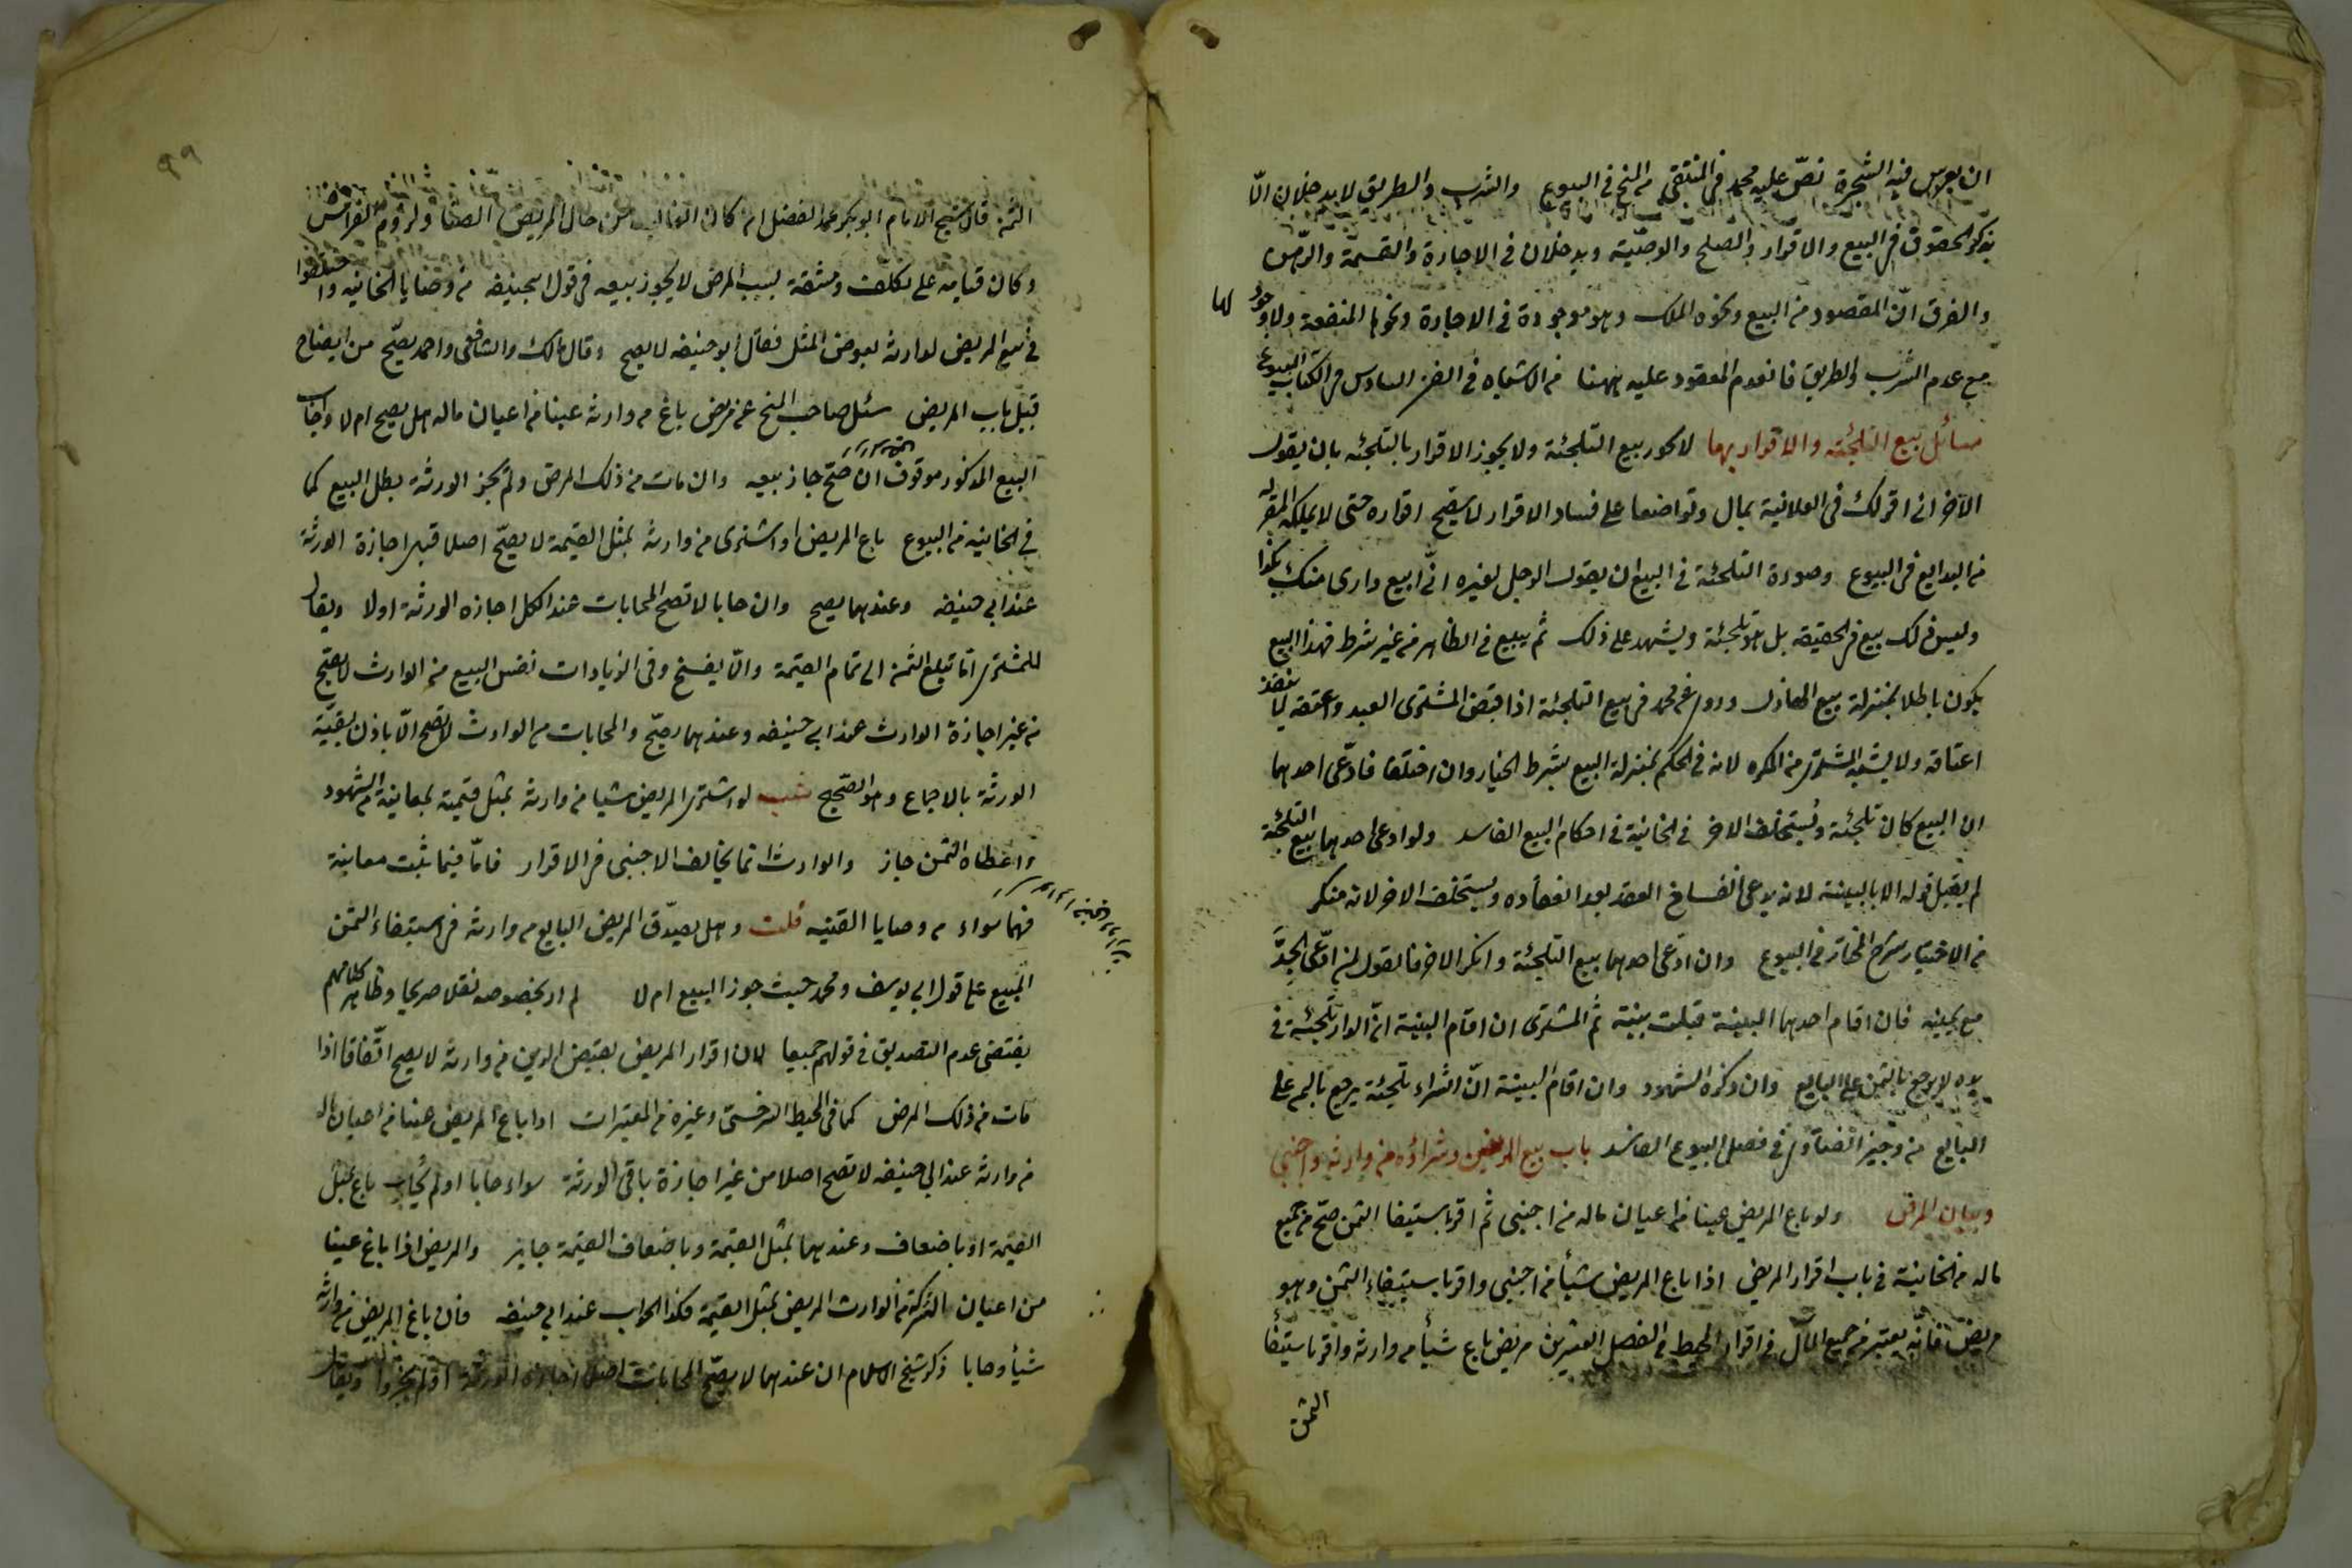 ان يغرس فيه الشجرة نصّ عليه محمد في المنتقى من المنح في البيوع والشرب والطريق لا يدخلان الّا
بذكر الحقوق في البيع والاقرار والصلح والوصيّة ويدخلان في الاجارة والقسمة والرهن
والفرق انّ المقصود من البيع ونحوه الملك وهو موجودة في الاجارة ونحوها المنفعة ولا وجود لها
مع عدم الشرب والطريق فانعدم المعقود عليه ههنا من الاشباه في الفن السادس من الكتاب البيوع
مسائل بيع التلجئة والاقرار بها لا يجوز بيع التلجئة ولا يجوز الاقرار بالتلجئه بان يقول
الآخر اني اقر لك في العلانية بمال وتواضعا على فساد الاقرار لا يصح اقراره حتى لا يملكه المقر له
من البدايع في البيوع وصورة التلجئة في البيع ان يقول الرجل لغيره انّي ابيع داري منك بكذا
وليس ذلك ببيع في الحقيقة بل هو تلجئة ويشهد على ذلك ثم يبيع في الظاهر من غير شرط فهذا البيع
يكون باطلا بمنزلة بيع الهازل وروى عن محمد في بيع التلجئة اذا قبض المشترى العبد واعتقه لا ينفذ
اعتاقه ولا يشبه المشترى من المكره لانه في الحكم بمنزلة البيع بشرط الخيار وان اختلفا فادّعى احدهما
ان البيع كان تلجئة يستحلف الاخر في الخانية في احكام البيع الفاسد ولو ادعى احدهما بيع التلجئة
لم يقبل قوله الا بالبينة لانه يدعى انفساخ العقد بعد انعقاده ويستحلف الاخر لانه منكر
من الاختيار شرح المختار في البيوع وان ادّعى احدهما بيع التلجئة وانكر الاخر فالقول لمن ادّعى الجدّ
مع يمينه فان اقام احدهما البينة قبلت بينة ثم المشترى ان اقام البينة انّ الدار تلجئة في
يده لا يرجع بالثمن على البايع وان ذكره الشهود وان اقام البينة انّ الشراء تلجئة يرجع بالثمن على
البايع من وجيز الفتاوى في فصل البيوع الفاسد باب بيع المريض وشراؤه من وارثه واجنبي
وبيان المرض ولو باع المريض عينا من اعيان ماله من اجنبي ثم اقر باستيفا الثمن صحّ من جميع
ماله من الخانية في باب اقرار المريض اذا باع المريض شيأ من اجنبي واقر باستيفاء الثمن وهو
مريض فانّه يعتبر من جميع المال في اقرار المحيط في الفصل العشرين مريض باع شيأ من وارثه واقر باستيفا
الثمن
٩٩
الثمن قال شيخ الامام ابو بكر محمد الفضل ان كان الغالب من حال المريض الضنا ولزوم الفراش
وكان قيامه على تكلف ومشقة بسبب المرض لا يجوز بيعه في قول ابيحنيفه من وصايا الخانيه واختلفوا
في بيع المريض لوارثه بعوض المثل فقال ابو حنيفه لا يصح وقال مالك والشافعى واحمد يصحّ من ايضاح
قبيل باب المريض سئل صاحب المنح عن مريض باع من وارثه عينا من اعيان ماله هل يصح ام لا واجاب
البيع المذكور موقوف ان صح جاز بيعه وان مات من ذلك المرض ولم تجز الورثة بطل البيع كما
في الخانية من البيوع باع المريض او اشترى من وارثه بمثل القيمة لا يصحّ اصلا قبل اجازة الورثة
عند ابي حنيفه وعندهما يصح وان حابا لا تصح المحابات عند الكل اجازه الورثة اولا ويقال
للمشترى امّا تبلغ الثمن الى تمام القيمة والّا يفسخ وفي الزيادات نفس البيع من الوارث لا يصح
من غير اجازة الوارث عند ابي حنيفه وعندهما يصحّ والمحابات من الوارث لا تصح الّا باذن بقيّة
الورثة بالاجماع وهو الصحيح لو اشترى المريض شيا من وارثه بمثل قيمته بمعاينة الشهود
واعطاه الثمن جاز والوارث انما يخالف الاجنبى في الاقرار فامّا فيما يثبت معاينة
فهما سواء من وصايا القنيه قلت وهل يصدّق المريض البايع من وارثه في استيفاء الثمن
المبيع على قول ابي يوسف ومحمد حيث جوز البيع ام لا لم ار بخصوصه نقلا صريحا وظاهر كلامهم
يقتضى عدم التصديق في قولهم جميعا لان اقرار المريض بقبض الدين من وارثه لا يصح اتفاقا اذا
مات من ذلك المرض كما في المحيط السرخسي وغيره من المعتبرات اذا باع المريض عينا من اعيان ماله
من وارثه عند ابي حنيفه لا تصح اصلا من غير اجازة باقي الورثة سواء حابا او لم يحاب باع بمثل
القيمة او باضعاف وعندهما بمثل القيمة وباضعاف القيمة جايز والمريض اذا باع عينا
من اعيان التركة من الوارث المريض بمثل القيمة فكذا الجواب عند ابي حنيفه فان باع المريض من وارثه
شيأ وحابا ذكر شيخ الاسلام ان عندهما لا يصحّ المحابات اصلا اجازه الورثة او لم يجيزوا ويقال